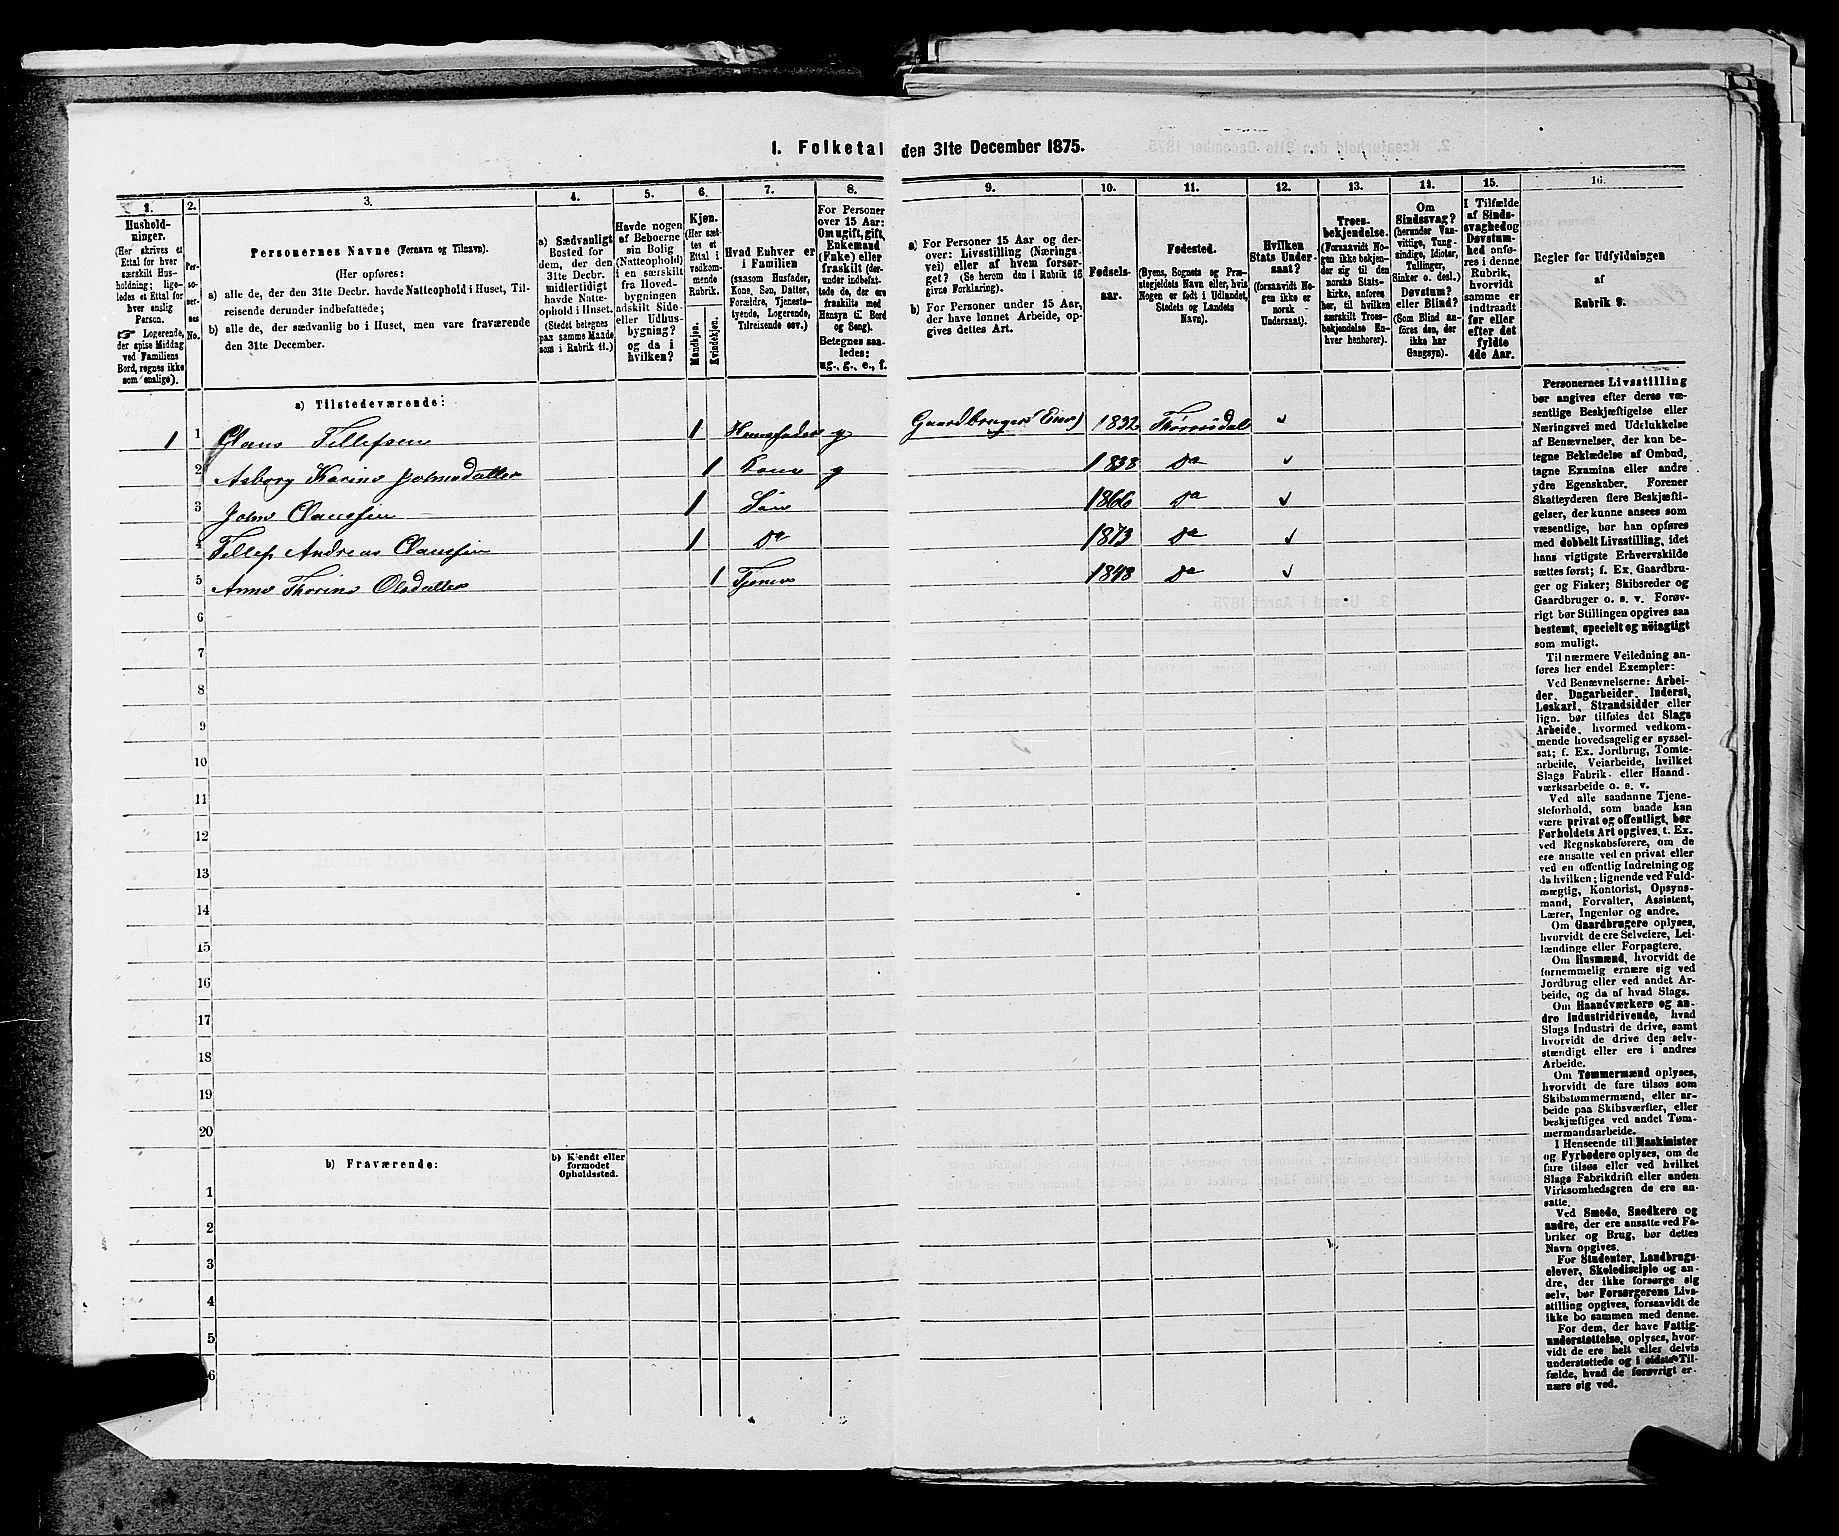 1. Folketal den 31te December 1875.
1.
2.
3.
4.
5.
6.
7.
8.
9.
10.
11.
12.
13.
14.
15.
16.
Hushold-
ninger.
(Her skrives et
Ettal for hver
særskilt Hus-
holdning; lige-
ledes et Ettal for
hver enslig
Person.
☞ Logerende,
der spise Middag
ved Familiens
Bord, regnes ikke
som enslige).
Per-
so-
ner-
nes
No.
Personernes Navne (Fornavn og Tilnavn).
(Her opføres:
a) alle de, der den 31te Decbr. havde Natteophold i Huset, Til-
reisende derunder indbefattede;
b) alle de, der sædvanlig bo i Huset, men vare fraværende
den 31te December.
a) Sædvanligt
Bosted for
dem, der den
31te Decbr.
midlertidigt
havde Natte-
ophold i Huset.
(Stedet betegnes
paa samme Maade
som i Rubrik 11.)
Havde nogen
af Beboerne
sin Bolig
(Natteophold)
i en særskilt
fra Hoved-
bygningen
adskilt Side-
eller Udhus-
bygning?
og da i
hvilken?
Kjøn.
(Her sæt-
tes et
Ettal i
vedkom-
mende
Rubrik.
Mandkjøn.
Kvindekjøn.
Hvad Enhver er
i Familien
(saasom Husfader,
Kone, Søn, Datter,
Forældre, Tjeneste-
tyende, Logerende,
Tilreisende osv.)
For Personer
over 15 Aar:
Om ugift, gift,
Enkemand
(Enke) eller
fraskilt (der-
under indbefat-
tede de, der ere
fraskilte med
Hensyn til Bord
og Seng).
Betegnes saa-
ledes:
ug., g., e., f.
a) For Personer 15 Aar og der-
over: Livsstilling (Nærings-
vei) eller af hvem forsør-
get? (Se herom den i Rubrik 16
givne Forklaring).
b) For Personer under 15 Aar,
der have lønnet Arbeide, op-
gives dettes Art.
Fødsels-
aar.
Fødested.
(Byens, Sognets og Præ-
stegjeldets Navn eller, hvis
Nogen er født i Udlandet,
Stedets og Landets
Navn).
Hvilken
Stats Under-
saat?
(forsaavidt No-
gen ikke er
norsk
Undersaat).
Troes-
bekjendelse.
(Forsaavidt No-
gen ikke bekjen-
der sig til den
norske Stats-
kirke, anføres
her, til hvilken
særskilt Troes-
bekjendelse En-
hver henhører).
Om
Sindssvag?
(herunder Van-
vittige, Tung-
sindige, Idioter,
Tullinger,
Sinker o. desl.)
Døvstum?
eller Blind?
(Som Blind an-
føres den, der
ikke har
Gangsyn).
I Tilfælde
af Sinds-
svaghed og
Døvstum-
hed anfø-
res i denne
Rubrik,
hvorvidt
samme er
indtraadt
før eller
efter det
fyldte
4de Aar.
Regler for Udfyldningen
af
Rubrik 9.
a) Tilstedeværende:
1 1 Claus Tellefsen 1 Huusfader g Gaardbruger (Eier) 1832 Thorrisdal ✓
2 Asborg Karine Johnsdatter 1 Kone g 1838 Do ✓
3 John Claussen 1 Søn 1866 Do ✓
4 Tellef Andreas Claussen 1 Do 1873 Do ✓
5 Anne Thorine Olsdatter 1 Tjener 1848 Do ✓
6
7
8
9
10
11
12
13
14
15
16
17
18
19
20
b) Fraværende:
b) Kjendt eller
formodet
Opholdssted.
1
2
3
4
5
6
Personernes Livsstilling
bør angives efter deres væ-
sentlige Beskjæftigelse eller
Næringsvei med Udelukkelse
af Benævnelser, der kun be-
tegne Beklædelse af Ombud,
tagne Examina eller andre
ydre Egenskaber. Forener
Skatteyderen flere Beskjæfti-
gelser, der kunne ansees som
væsentlige, bør han opføres
med dobbelt Livsstilling, idet
hans vigtigste Erhvervskilde
sættes først; f. Ex. Gaardbru-
ger og Fisker; Skibsreder og
Gaardbruger o. s. v. Forøv-
rigt bør Stillingen opgives saa
bestemt, specielt og nøiagtigt
som muligt.
Til nærmere Veiledning an-
føres her endel Exempler:
Ved Benævnelserne: Arbei-
der, Dagarbeider, Inderst,
Løskarl, Strandsidder eller
lign. bør tilføies det Slags
Arbeide, hvormed vedkom-
mende hovedsagelig er syssel-
sat; f. Ex. Jordbrug, Tomte-
arbeide, Veiarbeide, hvilket
Slags Fabrik- eller Haand-
værksarbeide o. s. v.
Ved alle saadanne Tjene-
steforhold, som baade kan
være privat og offentligt, bør
Forholdets Art opgives, t. Ex.
ved Regnskabsførere, om de
ere ansatte ved en privat eller
ved en offentlig Indretning og
da hvilken; lignende ved Fuld-
mægtig, Kontorist, Opsyns-
mand, Forvalter, Assistent,
Lærer, Ingeniør og andre.
Om Gaardbrugere oplyses,
hvorvidt de ere Selveiere, Lei-
lændinge eller Forpagtere.
Om Husmænd, hvorvidt de
fornemmelig ernære sig ved
Jordbrug eller ved andet Ar-
beide, og da af hvad Slags.
Om Haandværkere og an-
dre Industridrivende, hvad
Slags Industri de drive, samt
hvorvidt de drive den selv-
stændigt eller ere i andres
Arbeide.
Om Tømmermænd oplyses,
hvorvidt de fare tilsøs som
Skibstømmermænd, eller ar-
beide paa Skibsværfter, eller
beskjæftiges ved andet Tøm-
mermandsarbeide.
I Henseende til Maskinister
og Fyrbødere oplyses, om de
fare tilsøs eller ved hvilket
Slags Fabrikdrift eller anden
Virksomhedsgren de ere an-
satte.
Ved Smede, Snedkere og
andre, der ere ansatte ved Fa-
briker og Brug, bør dettes
Navn opgives.
For Studenter, Landbrugs-
elever, Skoledisciple og an-
dre, der ikke forsørge sig
selv, bør Forsørgerens Livs-
stilling opgives, forsaavidt de
ikke bo sammen med denne.
For dem, der have Fattig-
understøttelse, oplyses, hvor-
vidt de ere helt eller delvis
understøttede og i sidste Til-
fælde, hvad de forøvrigt er-
nære sig ved.